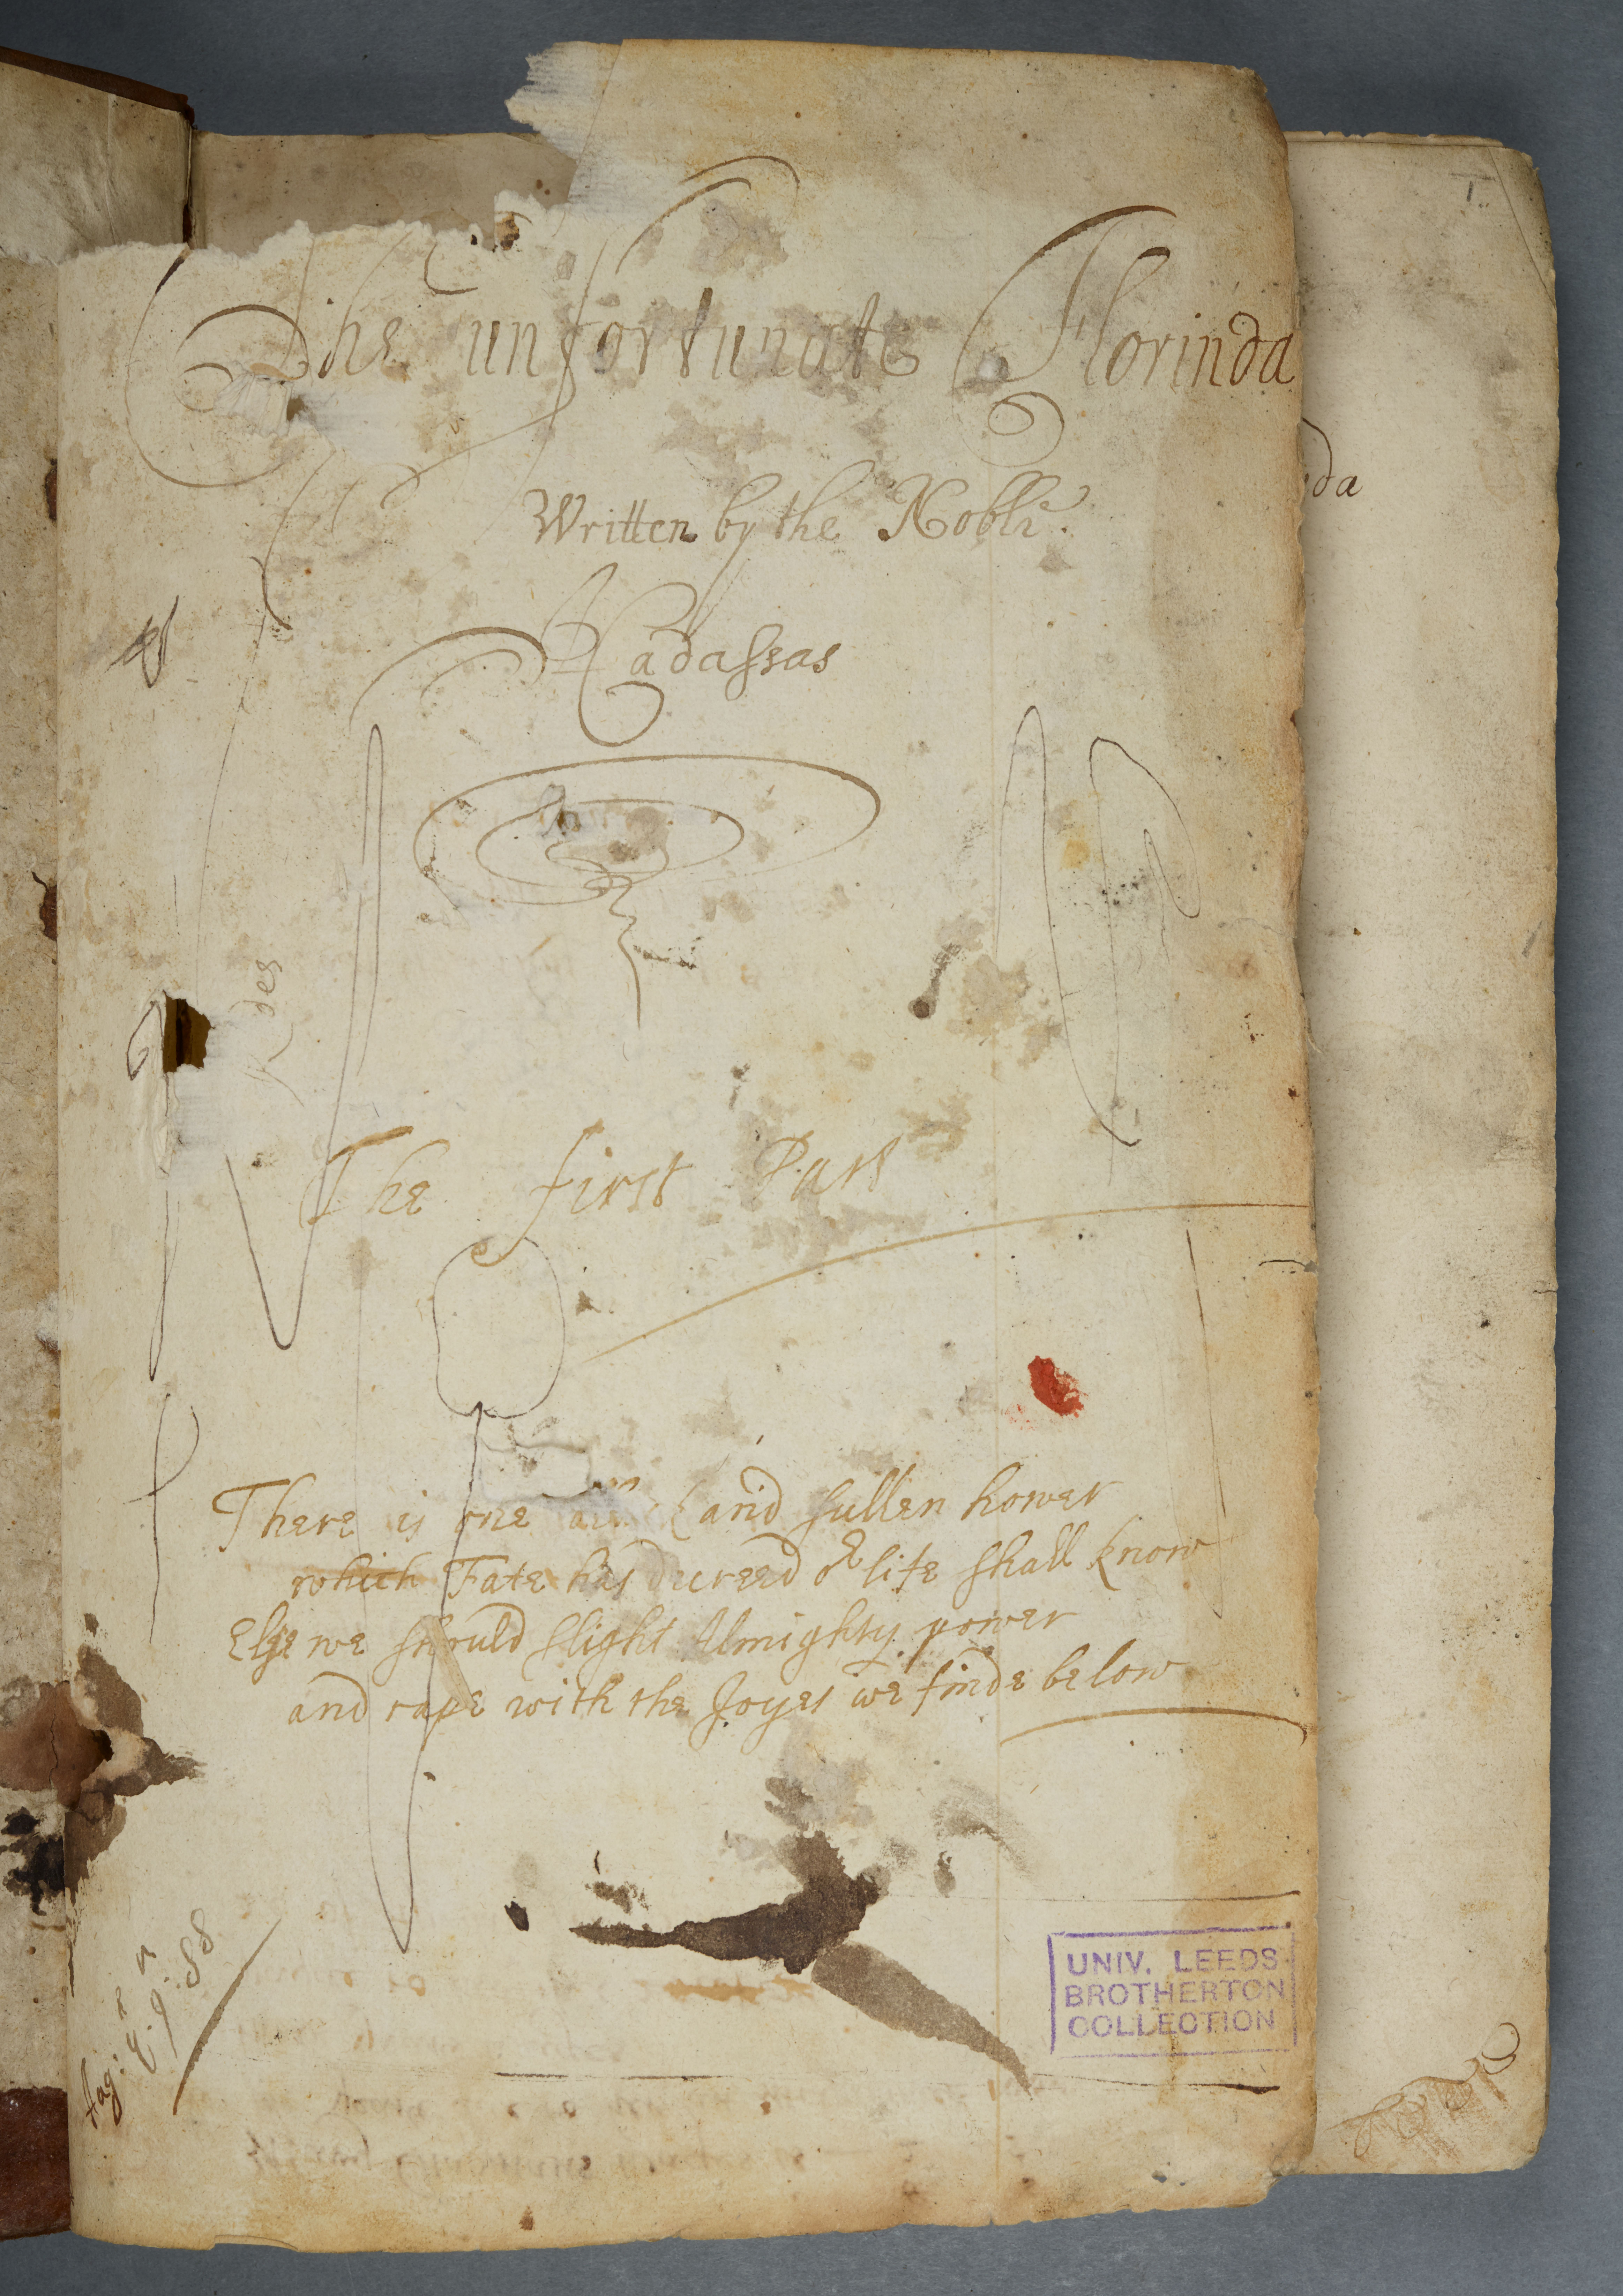 The unfortunate Florinda
Written by the Noble
Hadassas
The first Part
There is one and sullen hower
which Fate has decreed or life shall know
Else we should slight Almighty power
and rape with the Joyes we finde below
UNIV. LEEDS
BROTHERTON
COLLECTION
da
des